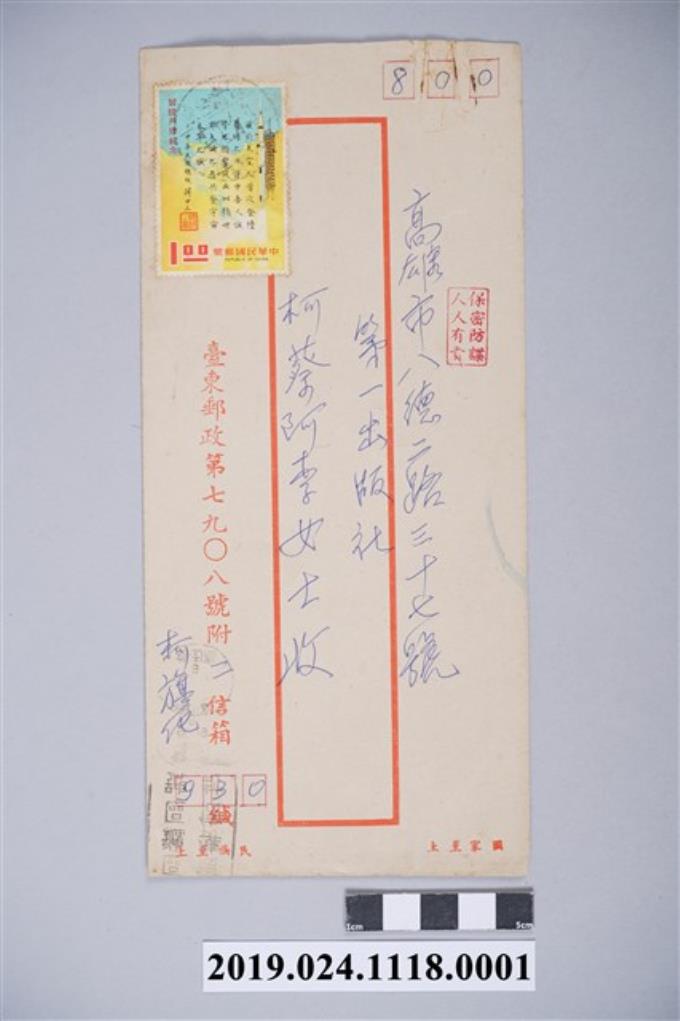 800
高雄市八德二路三十七號
保密防諜
人人有責
第一出版社
柯蔡阿李女士收
臺東郵政第七九〇八號附二信箱
柯旗化
930
緘
國家至上
民族至上
登陸月球紀念
1.00
中華民國郵票
REPUBLIC OF CHINA
1cm
5cm
2019.024.1118.0001